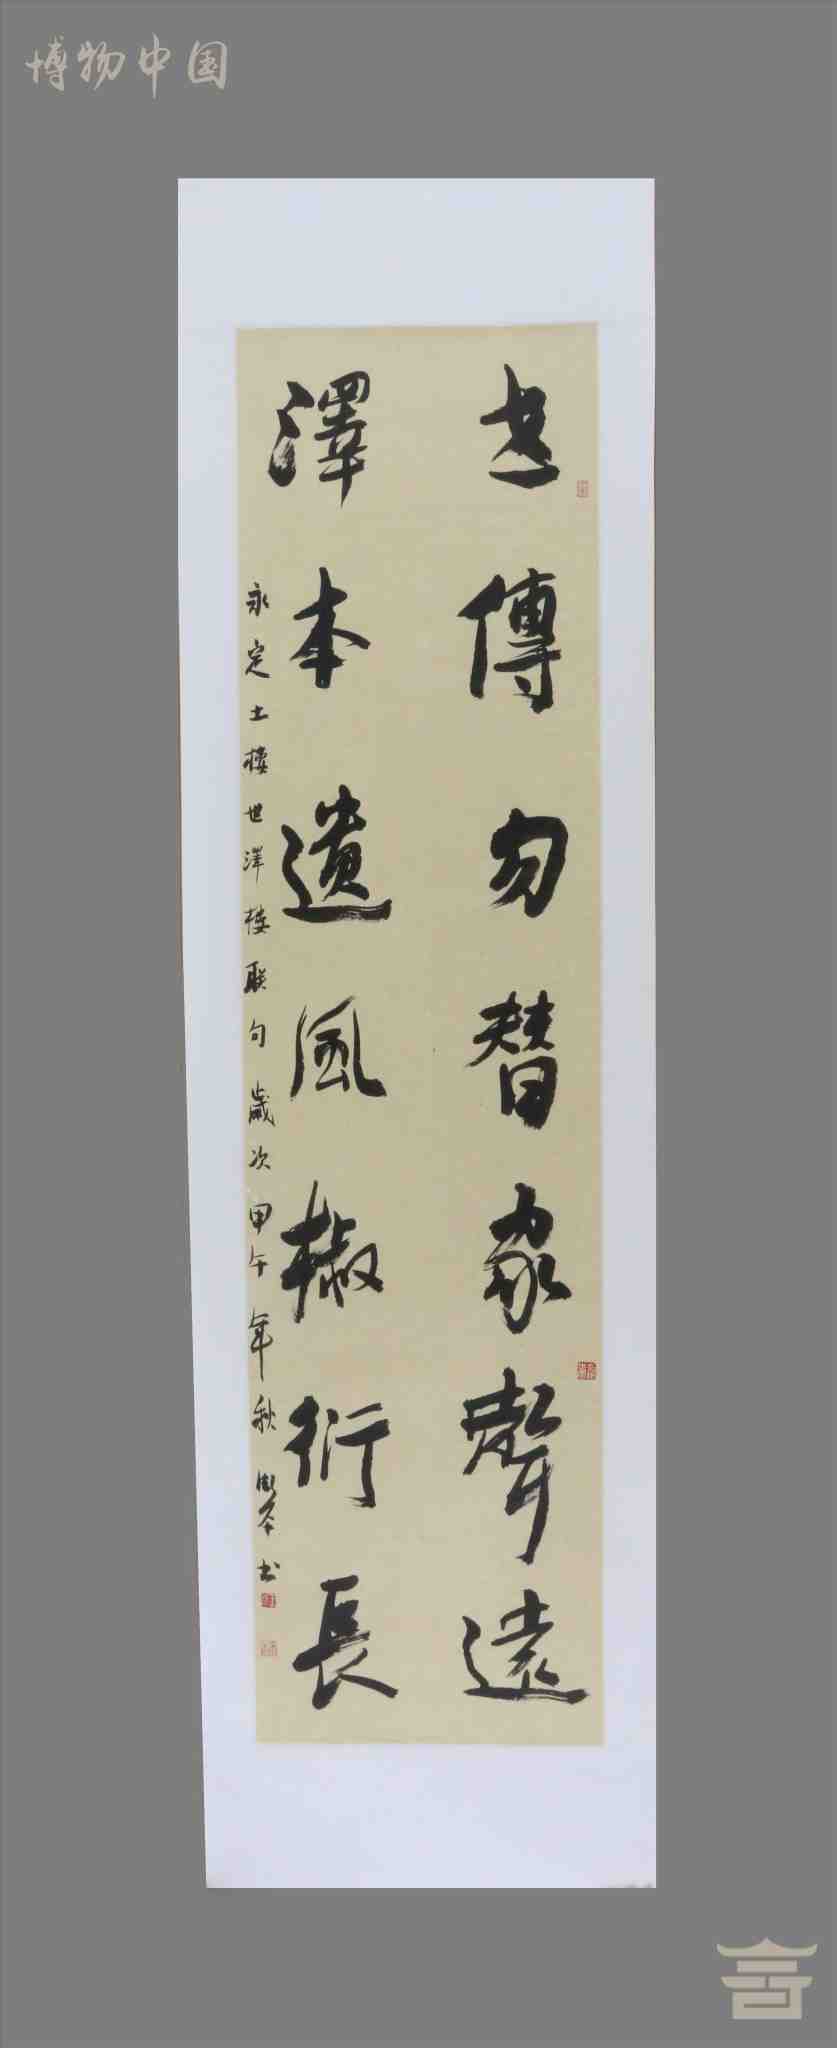 博物中国
世傳勿替家聲遠
澤本遺風椒衍長
永定土樓世澤樓联句 歲次甲午年秋 书